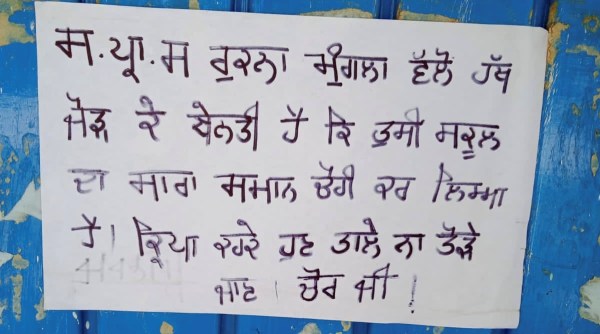 ਸ.ਪ੍ਰਾ.ਸ ਰੁਕਨਾ ਮੁੰਗਲਾ ਵੱਲੋਂ ਹੱਥ
ਜੋੜ ਕੇ ਬੇਨਤੀ ਹੈ ਕਿ ਤੁਸੀਂ ਸਕੂਲ
ਦਾ ਸਾਰਾ ਸਮਾਨ ਚੋਰੀ ਕਰ ਲਿਆ
ਹੈ। ਕ੍ਰਿਪਾ ਕਰਕੇ ਹੁਣ ਤਾਲੇ ਨਾ ਤੋੜੇ
ਜਾਣ। ਚੋਰ ਜੀ!